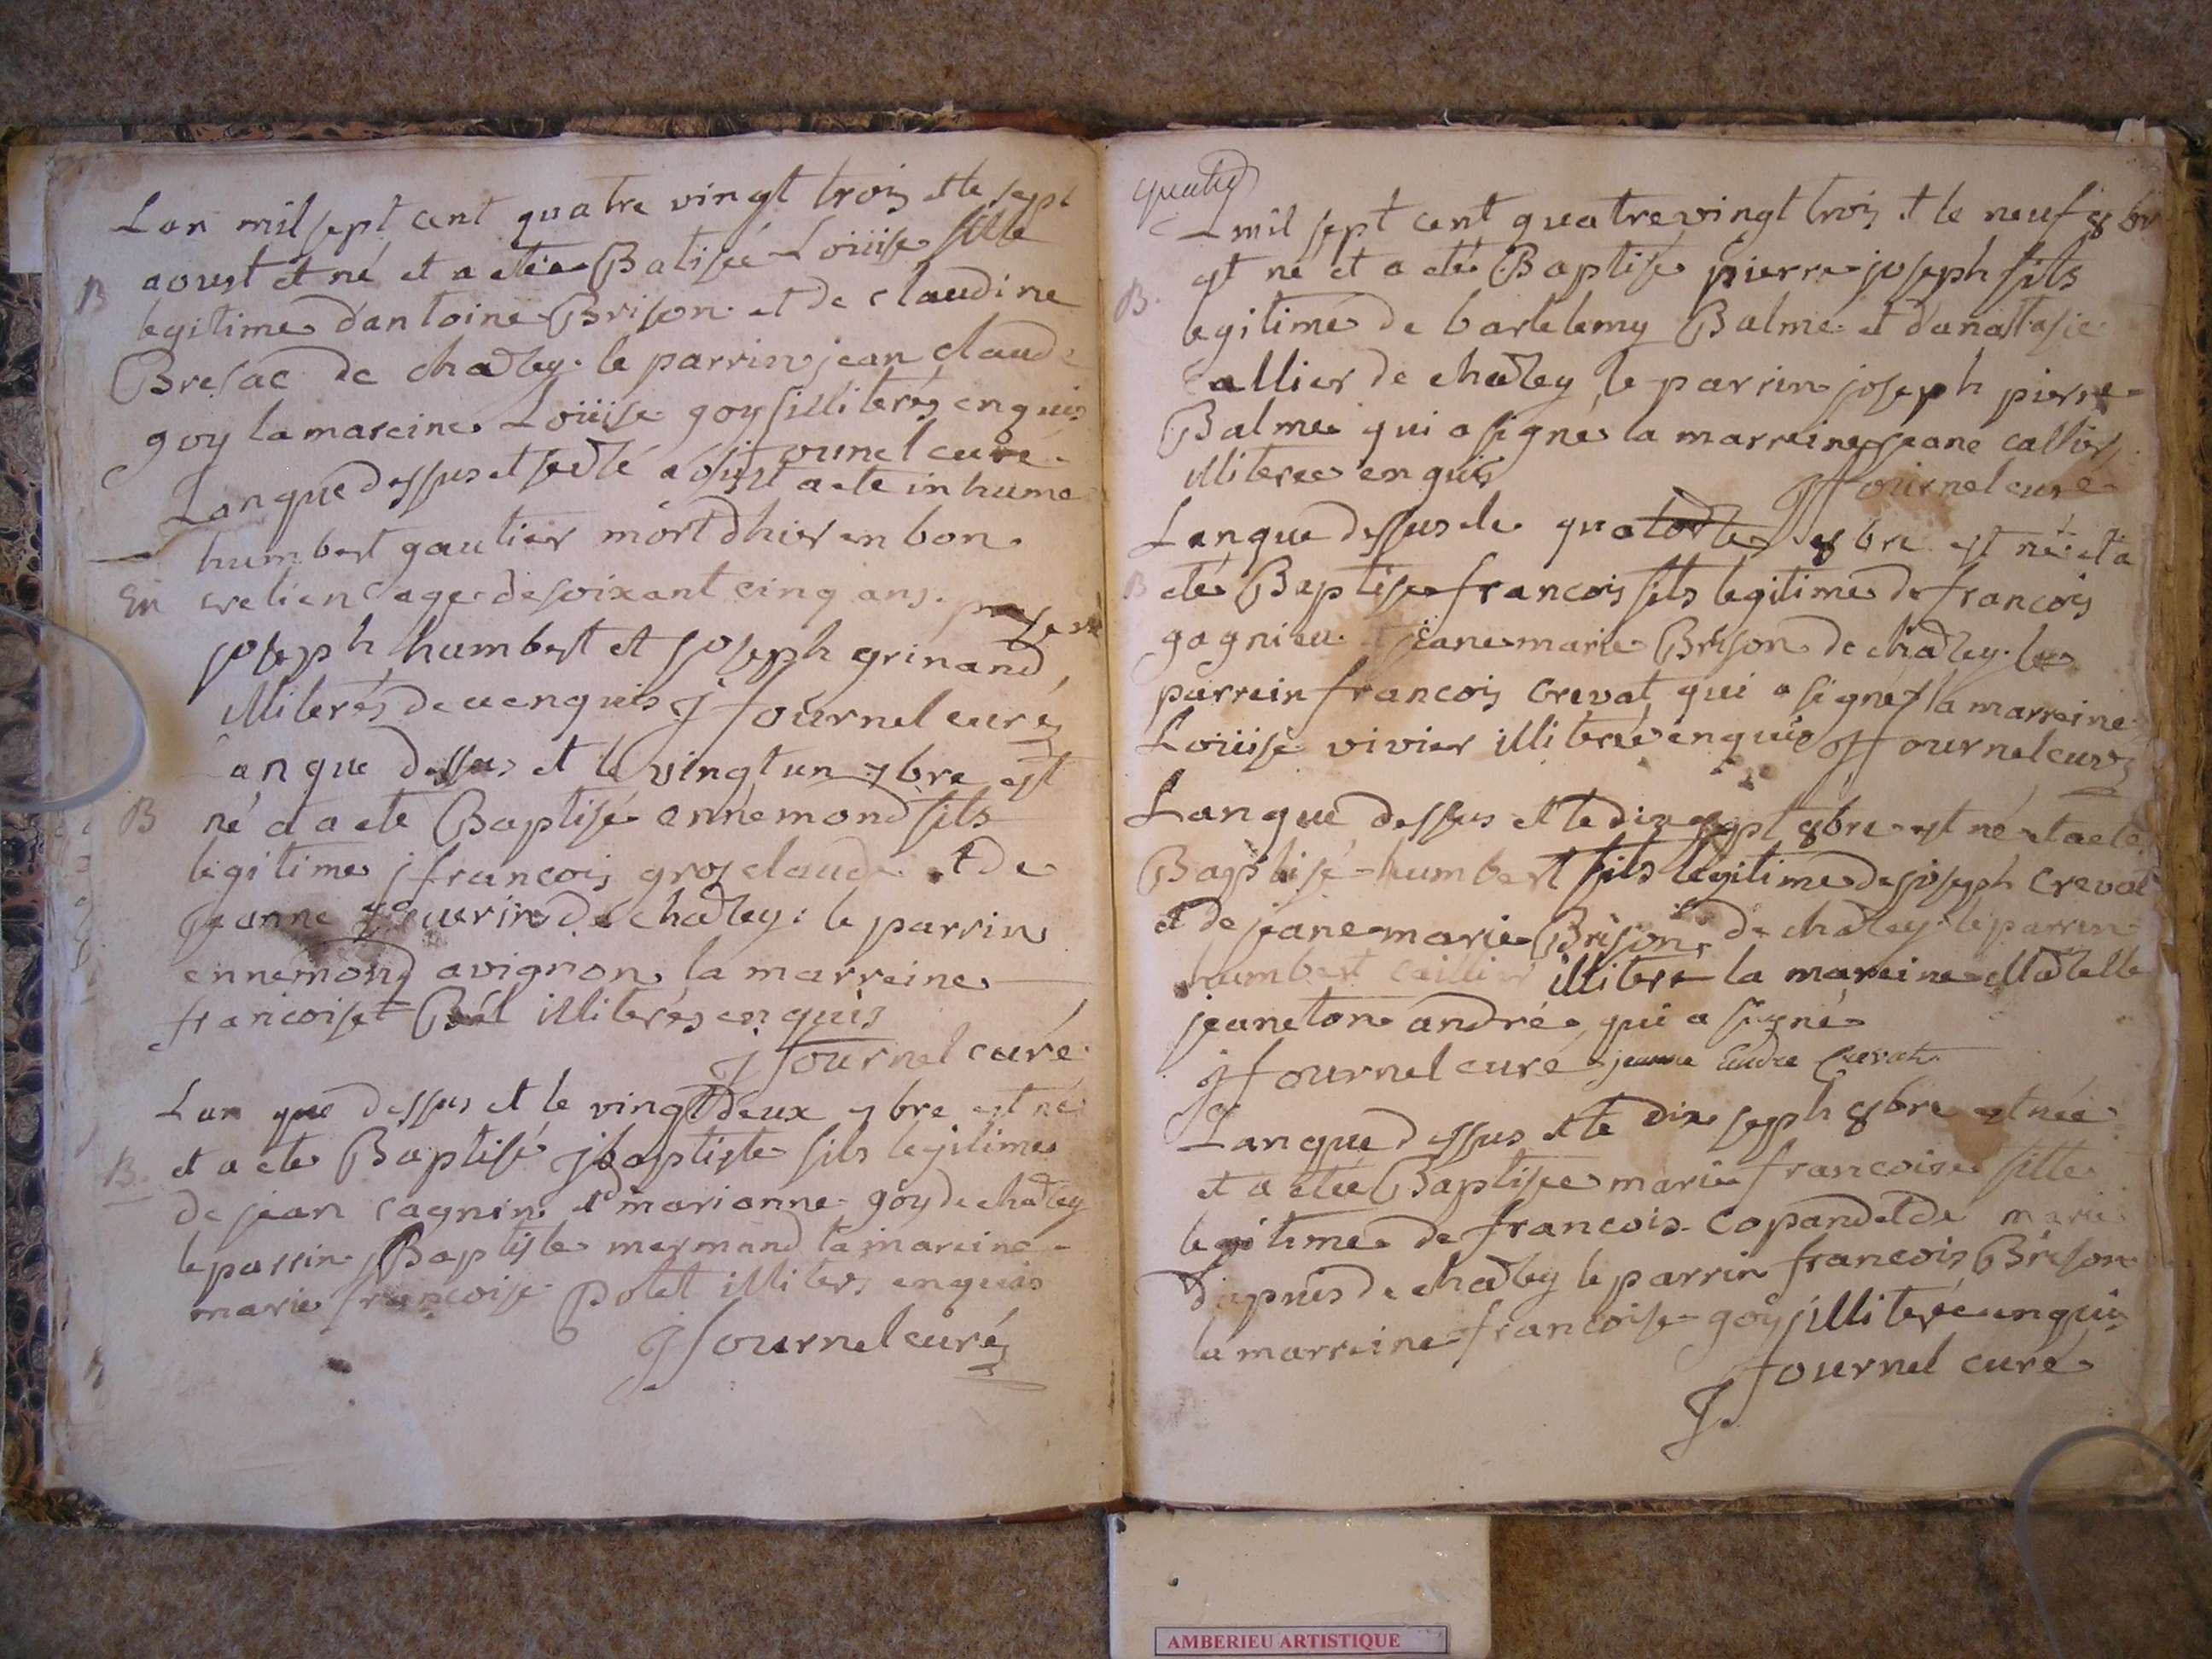 Lan mil sept cent quatre vingt trois et le sept
B aoust et né et a etée Batisée Loüise fille
legitime d'antoine Brison et de claudine
Bresac de chazley. le parrin jean claude
goy la mareine Loüise goy illiterés enquis
fournel curé
Lan que dessus et aoust a ete inhume
humbert gautier mort dhier en bon
En cretien age de soixant cinq ans.
joseph humbert et joseph grinand
illiterés de ce enquis J fournel curé
an que dessus et le vingt un 7bre est
B né et a ete Baptisé ennemond fils
legitime jfrancois gros claude et de
jeanne guerin de chazley: le parrin
ennemond avignon la marreine
francoise illiterés enquis
J fournel curé
Lan que dessus et le vingt deux 7bre est né
B. et a ete Baptisé jbaptiste fils legitime
de jean cagnin et marianne goy de chazley
le parrin jBaptiste mermand la mareine
marie francoise polet illiterés enquis
J fournel curé
quatre
L mil sept cent quatre vingt trois et le neuf 8bre
est né et a eté Baptisé pierre joseph fils
B. legitime de bartelemy Balme et d'anastasie
callier de chazley le parrin joseph pierre
Balme qui a signé la marreine jeane callier
illiteree enquis
J fournel curé
Lan que dessus et le quatorze 8bre est né et a
B eté Baptise francois fils legitime de francois
gagnieu et jeane marie Brison de chazley. le
parrein francois crevat qui a signé la marreine
Loüise vivier illiteré enquis J fournel curé
Lan que dessus et le dix sept 8bre est né et a ete
Baptisé humbert fils legitime de joseph crevat
et de jeane marie Brison de chazley. le parrin
humbert caillier illiteré la mareine Madlle
jeaneton andrée qui a signé
J fournel curé jeanne andre crevat
Lan que dessus et le dix septh 8bre est née
et a etée Baptisée marie francoise fille
legitime de francois copand et de marie
dupuis de chazley le parrin francois Brison
la marreine francoise goy illiterée enquis
J fournel curé
AMBERIEU ARTISTIQUE